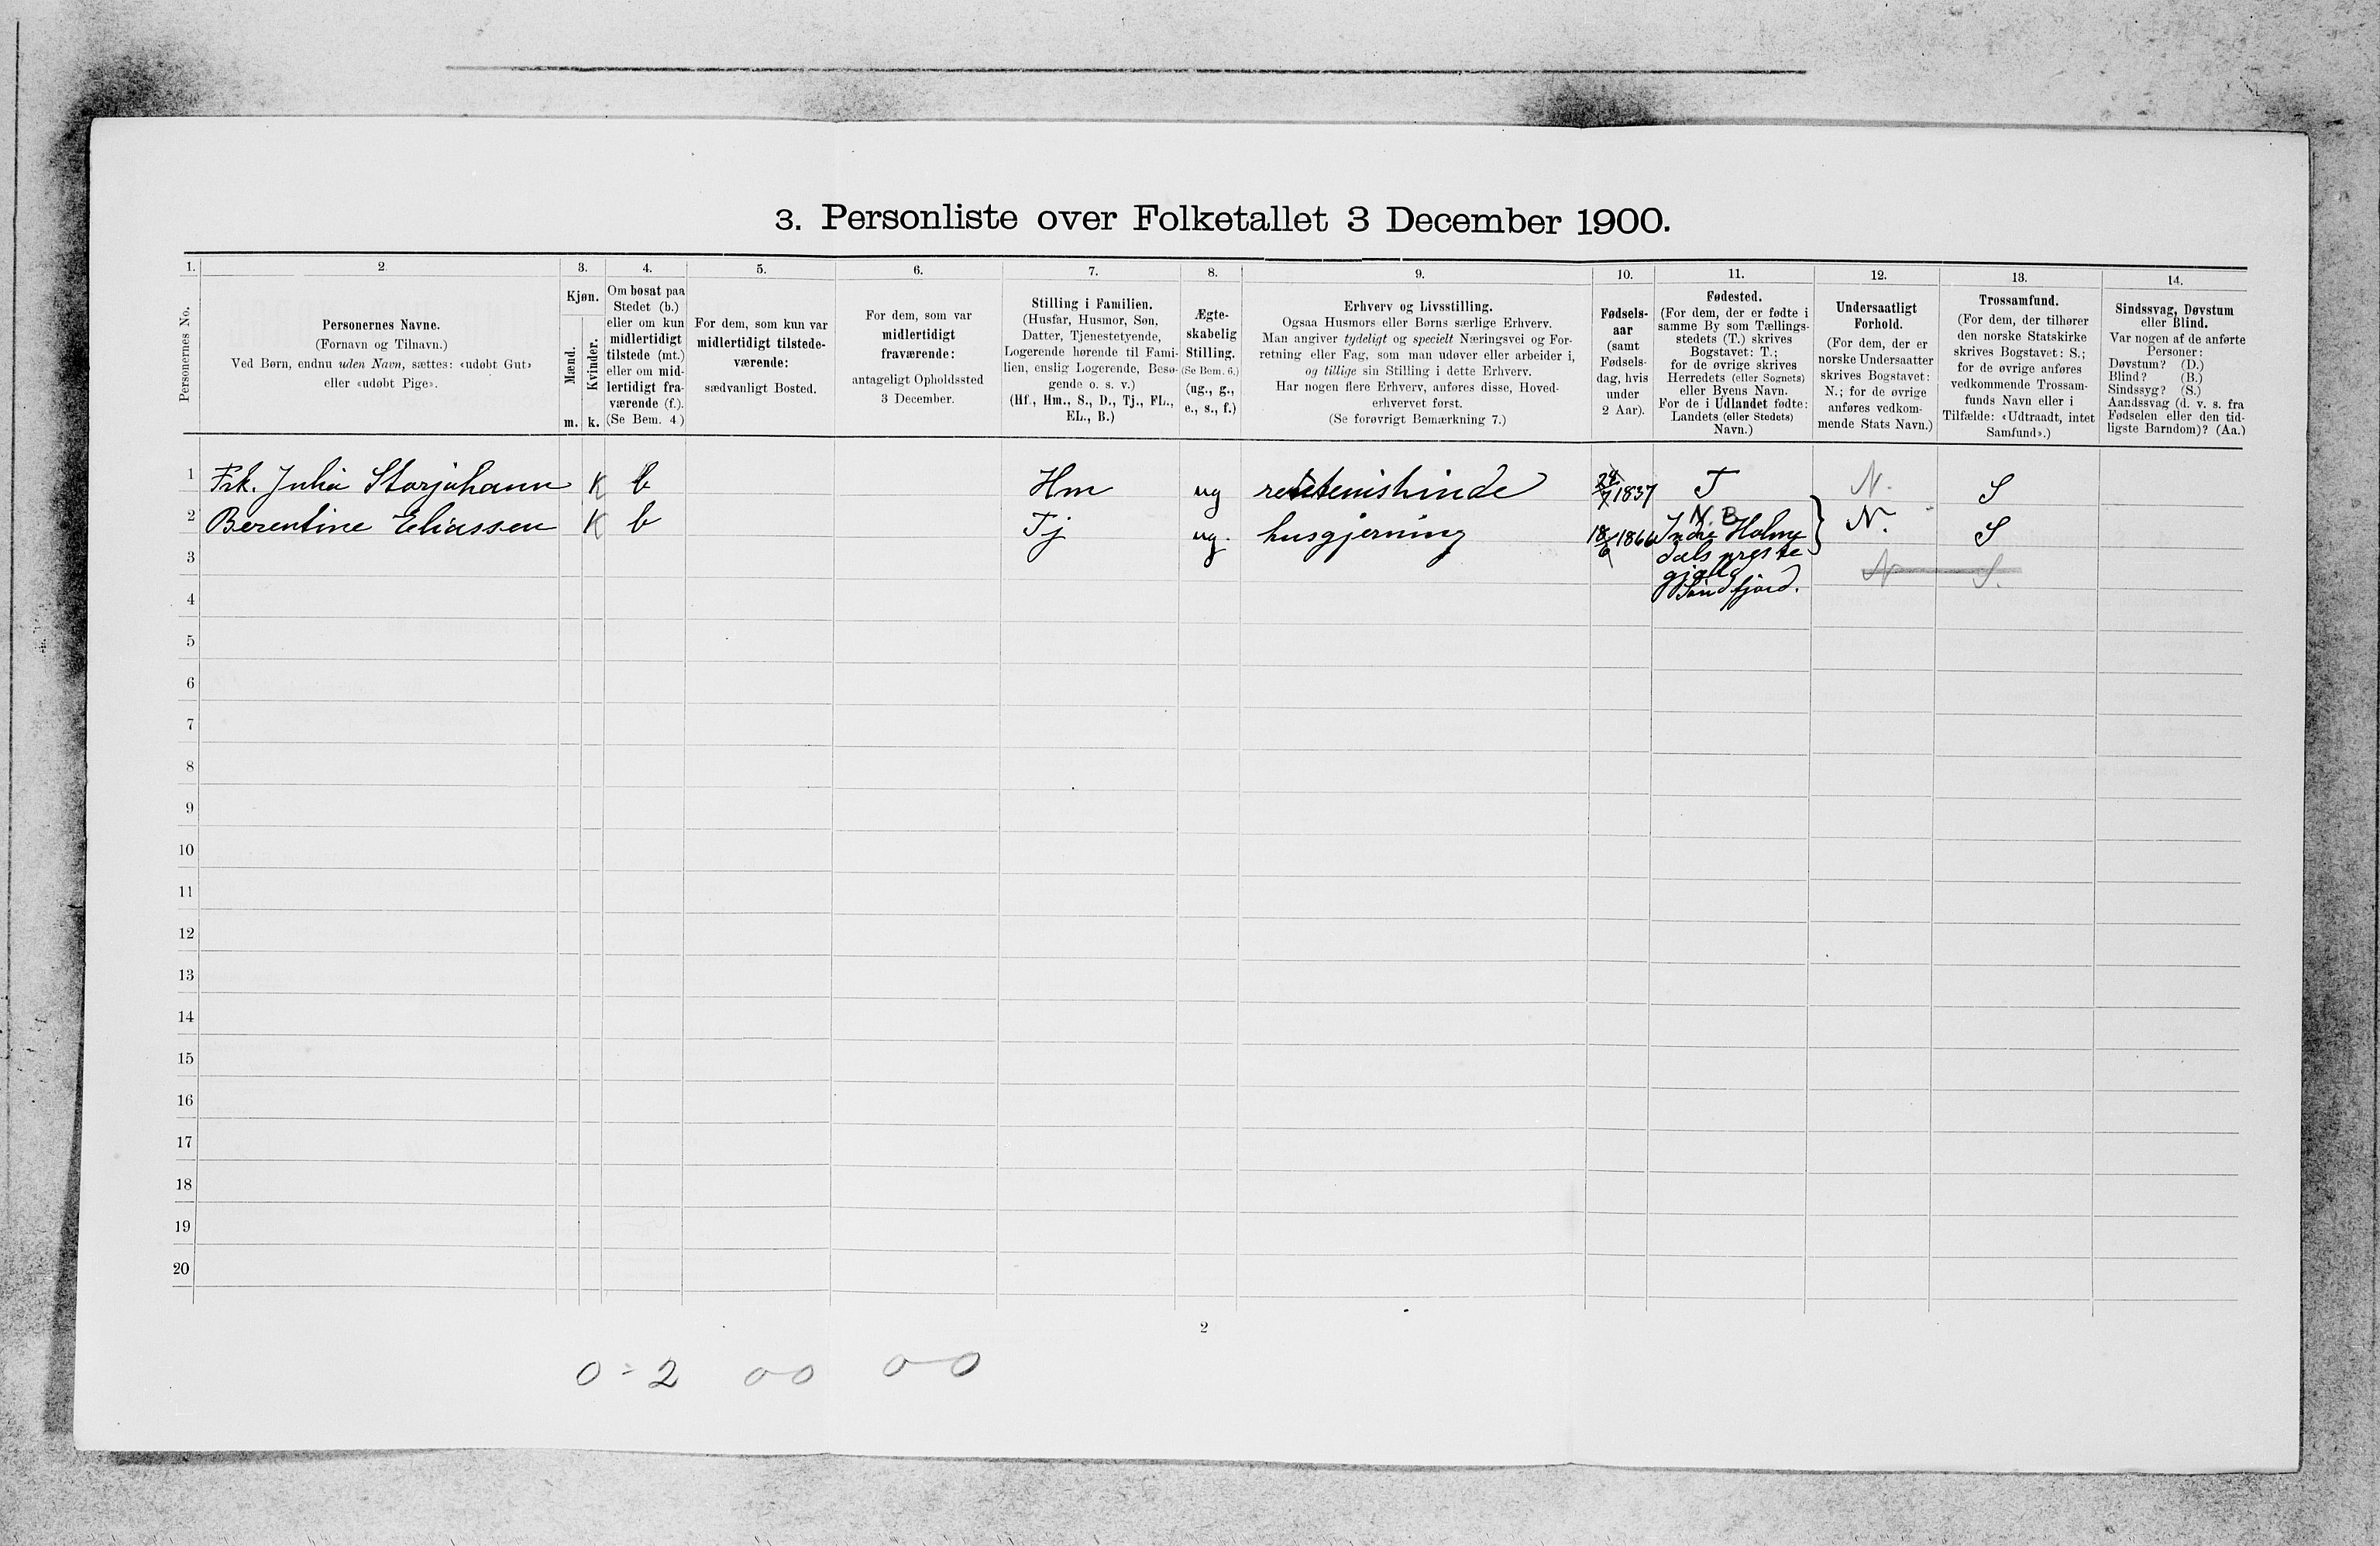 3. Personliste over Folketallet 3 December 1900.
1. 2. 3. 4. 5. 6. 7. 8. 9. 10. 11. 12. 13. 14.
Personernes No.
Personernes Navne.
(Fornavn og Tilnavn.)
Ved Børn, endnu uden Navn, sættes: «udøbt Gut»
eller «udøbt Pige».
Kjøn.
Mænd.
m.
Kvinder.
k.
Om bosat paa
Stedet (b.)
eller om kun
midlertidigt
tilstede (mt.)
eller om mid-
lertidigt fra-
værende (f.).
(Se Bem. 4.)
For dem, som kun var
midlertidigt tilstede-
værende:
sædvanligt Bosted.
For dem, som var
midlertidigt
fraværende:
antageligt Opholdssted
3 December.
Stilling i Familien.
(Husfar, Husmor, Søn,
Datter, Tjenestetyende,
Logerende hørende til Fami-
lien, enslig Logerende, Besø-
gende o. s. v.)
(Hf., Hm., S., D., Tj., FL.,
EL., B.)
Ægte-
skabelig
Stilling.
(Se Bem. 6.)
(ug., g.,
e., s., f.)
Erhverv og Livsstilling.
Ogsaa Husmors eller Børns særlige Erhverv.
Man angiver tydeligt og specielt Næringsvei og For-
retning eller Fag, som man udøver eller arbeider i,
og tillige sin Stilling i dette Erhverv.
Har nogen flere Erhverv, anføres disse, Hoved-
erhvervet først.
(Se forøvrigt Bemærkning 7.)
Fødsels-
aar
(samt
Fødsels-
dag, hvis
under
2 Aar).
Fødested.
(For dem, der er fødte i
samme By som Tællings-
stedets (T.) skrives
Bogstavet: T.;
for de øvrige skrives
Herredets (eller Sognets)
eller Byens Navn.
For de i Udlandet fødte:
Landets (eller Stedets)
Navn.)
Undersaatligt
Forhold.
(For dem, der er
norske Undersaatter
skrives Bogstavet:
N.; for de øvrige
anføres vedkom-
mende Stats Navn.)
Trossamfund.
(For dem, der tilhører
den norske Statskirke
skrives Bogstavet: S.;
for de øvrige anføres
vedkommende Trossam-
funds Navn eller i
Tilfælde: «Udtraadt, intet
Samfund».)
Sindssvag, Døvstum
eller Blind.
Var nogen af de anførte
Personer:
Døvstum? (D.)
Blind? (B.)
Sindssyg? (S.)
Aandssvag (d. v. s. fra
Fødselen eller den tid-
ligste Barndom)? (Aa.)
1 Frk. Julia Storjohann K b Hm ug 24/7 1837 T N. S
2 Berentine Eliassen K b Tj ug. husgjerning 18/6 1866 N.B. Indre Holme } N. S
dals preste
gjæld
Søndfjord.
N S.
3
4
5
6
7
8
9
10
11
12
13
14
15
16
17
18
19
20
2
0 - 2 0 0 0-0